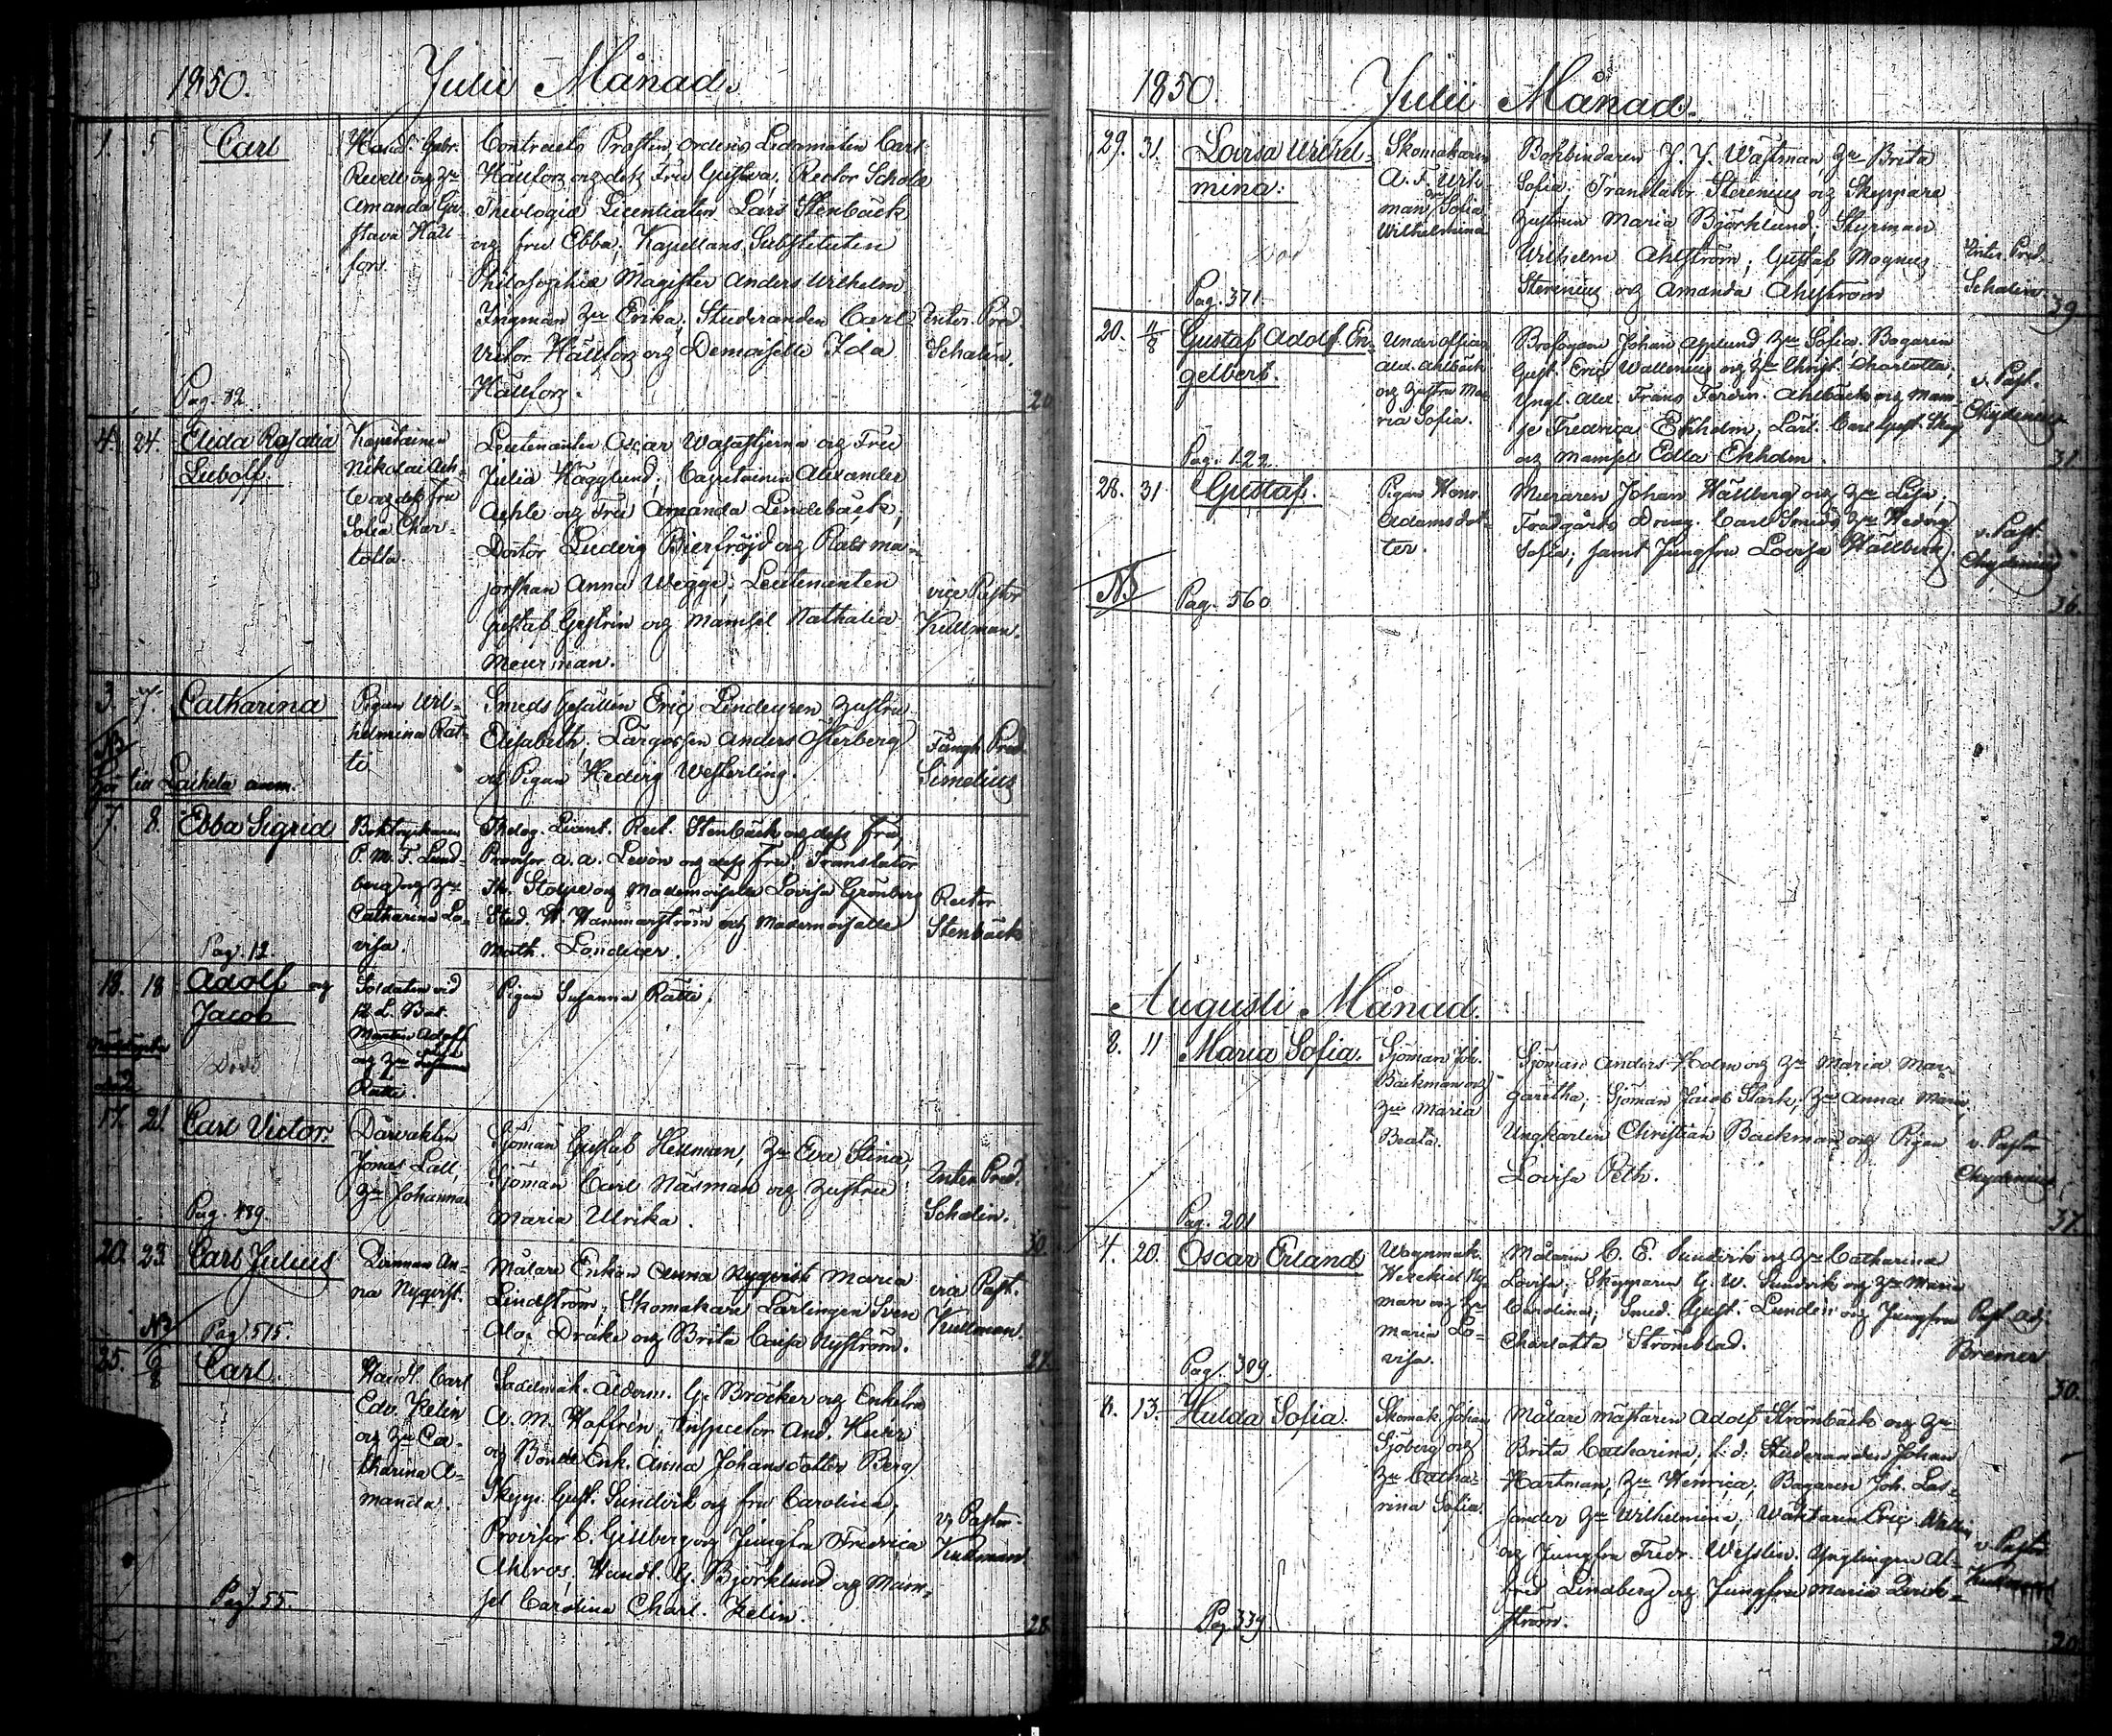 1850. Julii Månad.
1. 5 Carl
Handl. Gabr.
Revell och Hu
Amanda Gu-
stava Häll-
fors.
Contracts Prosten, ordens Ledamoten Carl
Hällfors och dess Fru Gustava, Rector Scholæ
Theologiæ Licentiaten Lars Stenbäck
och fru Ebba; Kapellans Substituten
Philosophiæ Magister Anders Wilhelm
Ingman Hu Erika, Studeranden Carl
Victor Hällfors och Demoiselle Ida
Hällfors.
Inter. Pred.
Schalin.
Pag. 82.
4. 24. Elida Rosalia
Lubolf.
Kapitainen
Nikolai Aeh-
le och dess fru
Sofia Char-
lotta.
Leutenanten Oscar Wasastjerna och Fru
Julia Hägglund; Capitainen Alexander
Aehle och Fru Amanda Lindebäck;
Doctor Ludvig Bierfröjd och Råds ma-
jorskan Anna Wegge; Leutenanten
Gustab Gestrin och Mamsel Nathalia
Meurman.
vice Pastor
Kullman.
3. 7. Catharina
Pigan Wil-
helmina Rat-
ti
Smeds Gesällen Eric Lindegren hustru
Elisabeth, Lärgossen Anders Österberg
och Pigan Hedvig Westerling.
Fångh. Pred.
Simelius
NB
till Laihela anm.
7. 8. Ebba Sigrid
Boktryckaren
P. M. T. Lund-
berg och Hu
Catharina Lo-
visa.
Theolog. Licent. Rect. Stenbäck och dess Fru,
Provisor A. A. Levón och dess Fru, Translator
Th. Stolpe och Mademoiselle Lovisa Grönberg
Stud. H. Hammarström och Mademoiselle
Math. Londicer.
Rector
Stenbäck
Pag. 12.
18. 18 Adolf och
Jacob
Döde
Soldaten vid
Martin Adolf
och Hu
Ratti.
Pigan Susanna Ratti.
17. 21. Carl Victor
Dårvakten
Jonas Lall,
Hu Johanna
Sjöman Gustab Hellman, Hu Eva Stina;
Sjöman Carl Näsman och hustru
Maria Ulrika.
Inter. Pred.
Schalin.
Pag. 489.
30.
20. 23. Carl Julius
Qvinnan An-
na Nyqvist.
Målare Enkan Anna Nyqvist Maria
Lindström; Skomakare Lärlingen Sven
Alo. Dråke och Brita Caisa Nyström.
vice Past.
Kullman
NB Pag. 515.
27.
25. 6/8 Carl.
Handl. Carl
Edv. Kelin
och Hu Ca-
tharina A-
manda.
Sadelmak. Ålderm. G. Bröcker och Enkefru
A. M. Hoffrén; Inspector And.
och Bonde Enk. Anna Johansdotter Berg
Skepp. Gust. Sundvik och fru Carolina;
Provisor C. Gillberg och Jungfru Fredrica
Handl. G. Björklund och Mam-
sel Carolina Charl. Kelin.
v. Pastor
Kullman.
Pag. 55.
28.
1850. Julii Månad.
29. 31. Lovisa Wilhel-
mina.
Död
Skomakaren
A. F. Wik-
man och Sofia
Wilhelmina
Bokbindaren J. J. Wästman, Hu Brita
Sofia; Translator Sterenius och Skeppare
hustrun Maria Björklund; Styrman
Wilhelm Ahlström; Gustab Magnus
Sterenius och Amanda Ahlström
Inter. Pred.
Schalin.
Pag. 371.
39.
20. 4/8 Gustaf Adolf En-
gelbert.
Under officer
Alex. Ahlbäck
och hustru Ma-
ria Sofia.
Profossen Johan Applund Hu Sofia; Bagaren
Gust. Eric Wallenius och Hu Christ. Charlotta;
Yngl. Alex. Frans Ferdin. Ahlbäck och Mam-
se Fredrica Ekholm; Lärl. Carl Gust.
och Mamsel Edla Ekholm.
v. Past.
Chydenius
Pag. 122.
31.
28. 31 Gustaf.
Pigan
Adamsdot-
ter.
Muraren Johan Hällberg och Hu Lisa;
Trädgårds Dräng. Carl Smeds Hu Hedvig
Sofia; samt Jungfru Lovisa Hällberg.
v. Past.
Chydenius
NB Pag. 560
36.
Augusti Månad.
8. 11 Maria Sofia.
Sjöman Joh.
Backman och
Hu Maria
Beata.
Sjöman Anders Holm och Hu Maria Mar-
garetha; Sjöman Jacob Stark, Hu Anna Maria,
Ungkarlen Christian Backman och Pigan
Lovisa Peth.
v. Pastor
Chydenius
Pag. 201
37.
4. 20. Oscar Erland
Wagnmak.
Hezekiel Ny-
man och Hu
Maria Lo-
visa.
Målaren C. E. Sundvik och Hu Catharina
Lovisa; Skepparen G. W. Sundvik och Hu Maria
Carolina; Smed. Gust. Lunden och Jungfru
Charlotta Strömblad.
Past. adj.
Bremer
Pag. 309.
30.
11. 13. Hulda Sofia.
Skomak. Johan
Sjöberg och
Hu Catha-
rina Sofia.
Målare mästaren Adolf Strömbäck och Hu
Brita Catharina, f. d. Studeranden Johan
Hartman, Hu Henrica; Bagaren Joh. Las-
sander Hu Wilhelmina; Väktaren Eric Wallin
och Jungfru Fredr. Wesslin. Ynglingen Al-
fred Lindberg och Jungfru Maria Qvick-
ström.
v. Pastor
Kullman
Pag. 339.
20.